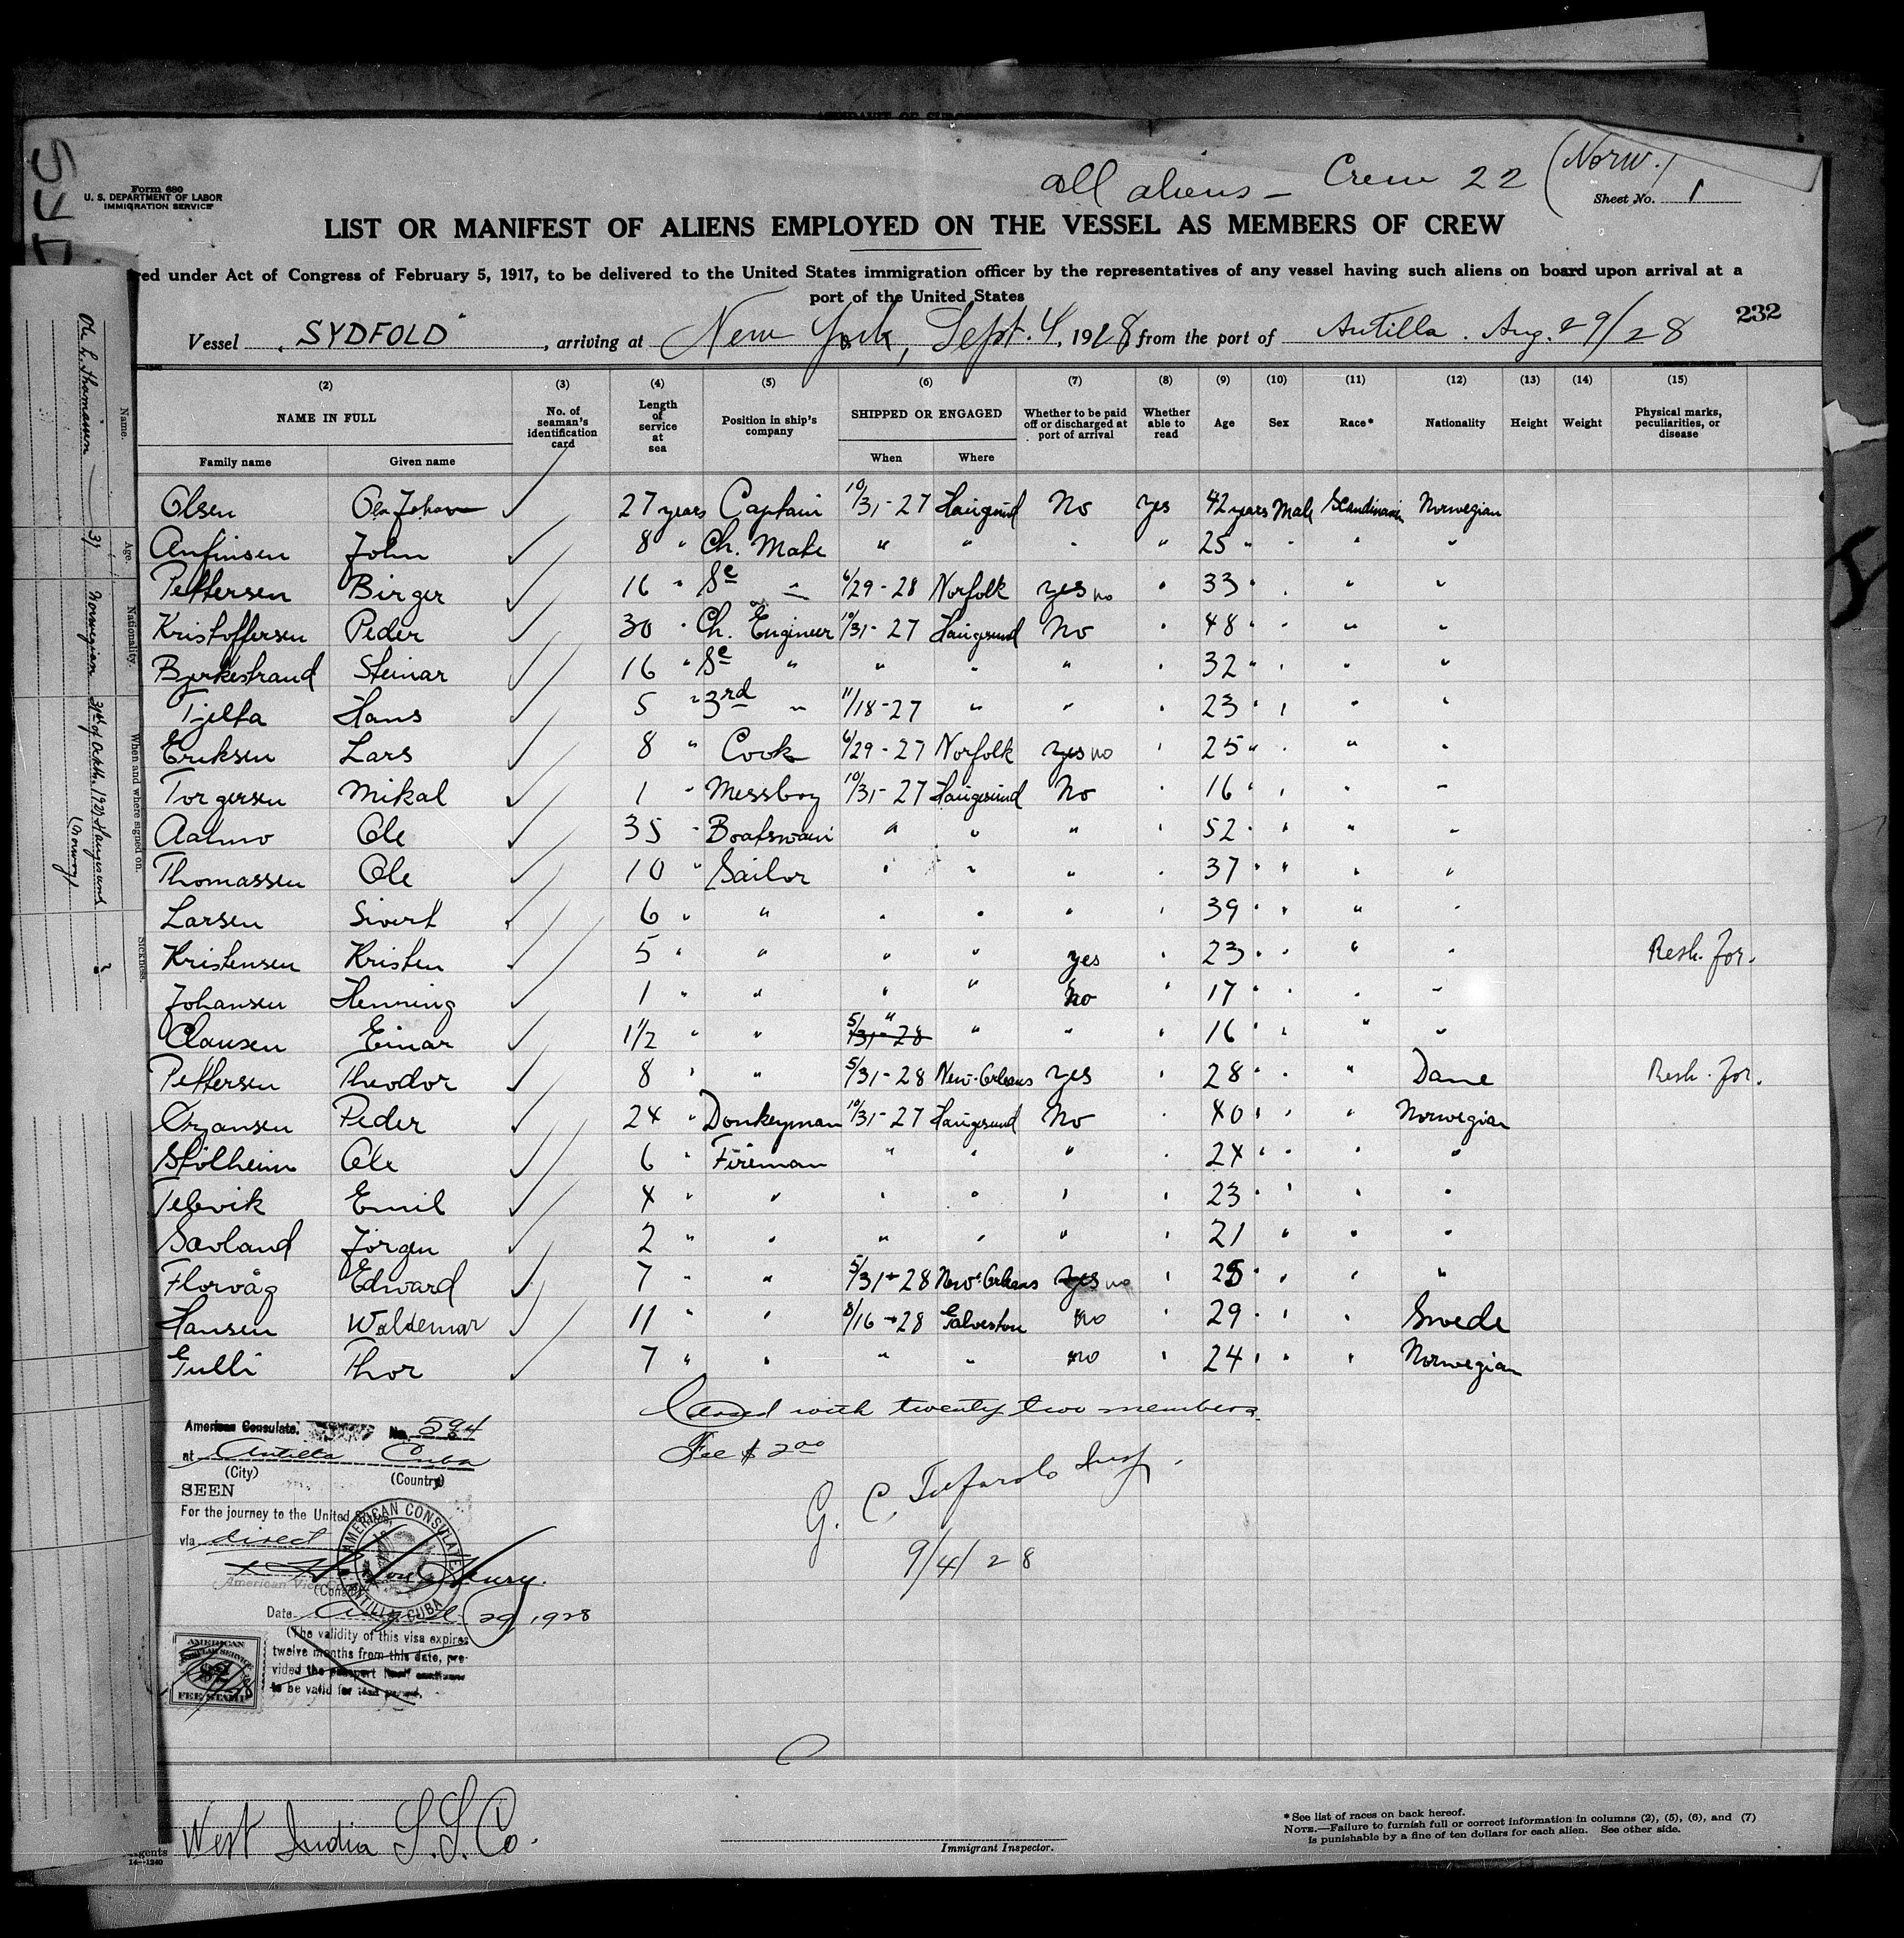 Form 680
U. S. DEPARTMENT OF LABOR
IMMIGRATION SERVICE
all aliens - Crew 22 (Norw.)
Sheet No. 1
LIST OR MANIFEST OF ALIENS EMPLOYED ON THE VESSEL AS MEMBERS OF CREW
red under Act of Congress of February 5, 1917, to be delivered to the United States immigration officer by the representatives of any vessel having such aliens on board upon arrival at a
port of the United States
232
Vessel "SYDFOLD", arriving at New York, Sept. 4, 1928 from the port of Antilla. Aug. 29/28
(2) (3) (4) (5) (6) (7) (8) (9) (10) (11) (12) (13) (14) (15)
NAME IN FULL No. of seaman's identification card Length of service at sea Position in ship's company SHIPPED OR ENGAGED Whether to be paid off or discharged at port of arrival Whether able to read Age Sex Race* Nationality Height Weight Physical marks, peculiarities, or disease
Family name Given name When Where
Olsen Ole Johan 27 years Captain 10/31-27 Haugesund No yes 42 years Male Scandinavian Norwegian
Anfinsen John 8 " Ch. Mate " " " " 25 " " " "
Pettersen Birger 16 " Se " 6/29-28 Norfolk yes no " 33 " " " "
Kristoffersen Peder 30 " Ch. Engineer 10/31-27 Haugesund No " 48 " " " "
Bjerkestrand Steinar 16 " Se " " " " " 32 " " " "
Tjelta Hans 5 " 3rd " 11/18-27 " " " 23 " " " "
Eriksen Lars 8 " Cook 6/29-27 Norfolk yes no " 25 " " " "
Torgersen Mikal 1 " Messboy 10/31-27 Haugesund No " 16 " " " "
Aalmo Ole 35 " Boatswain " " " " 52 " " " "
Thomassen Ole 10 " Sailor " " " " 37 " " " "
Larsen Sivert 6 " " " " " " 39 " " " "
Kristensen Kristen 5 " " " " yes " 23 " " " " Resh. for.
Johansen Henning 1 " " " " No " 17 " " " "
Clausen Einar 1 1/2 " " 5/31-28 " " " " 16 " " " "
Pettersen Theodor 8 " " 5/31-28 New-Orleans yes " 28 " " " Dane Resh. for.
Orjansen Peder 24 " Donkeyman 10/31-27 Haugesund No " 40 " " " Norwegian
Stolheim Ole 6 " Fireman " " " " 24 " " " "
Televik Emil 4 " " " " " " 23 " " " "
Savland Jörgen 2 " " " " " " 21 " " " "
Florvåg Edward 7 " " 5/31-28 New-Orleans yes no " 25 " " " "
Hansen Waldemar 11 " " 8/16-28 Galveston no " 29 " " " Swede
Gulli Thor 7 " " " " no " 24 " " " Norwegian
Closed with twenty two members.
Fee $ 2.00
9/4/28
American Consulate. No. 594
at Antilla Cuba
(City) (Country)
SEEN
For the journey to the United States,
via direct
American Vice Consul
(Consul)
AMERICAN CONSULATE
ANTILLA, CUBA
Date August 29, 1928
(The validity of this visa expires
twelve months from this date, pro-
vided the passport
to be valid for
AMERICAN
FEE STAMP
West India S.S.Co.
Agents
14-1240
Immigrant Inspector.
*See list of races on back hereof.
NOTE.—Failure to furnish full or correct information in columns (2), (5), (6), and (7)
is punishable by a fine of ten dollars for each alien. See other side.
Name. Age. Nationality. When and where signed on. Sickness.
Ole L. Thomassen 31 Norwegian 31st of Octb. 1927 Haugesund
(Norway)